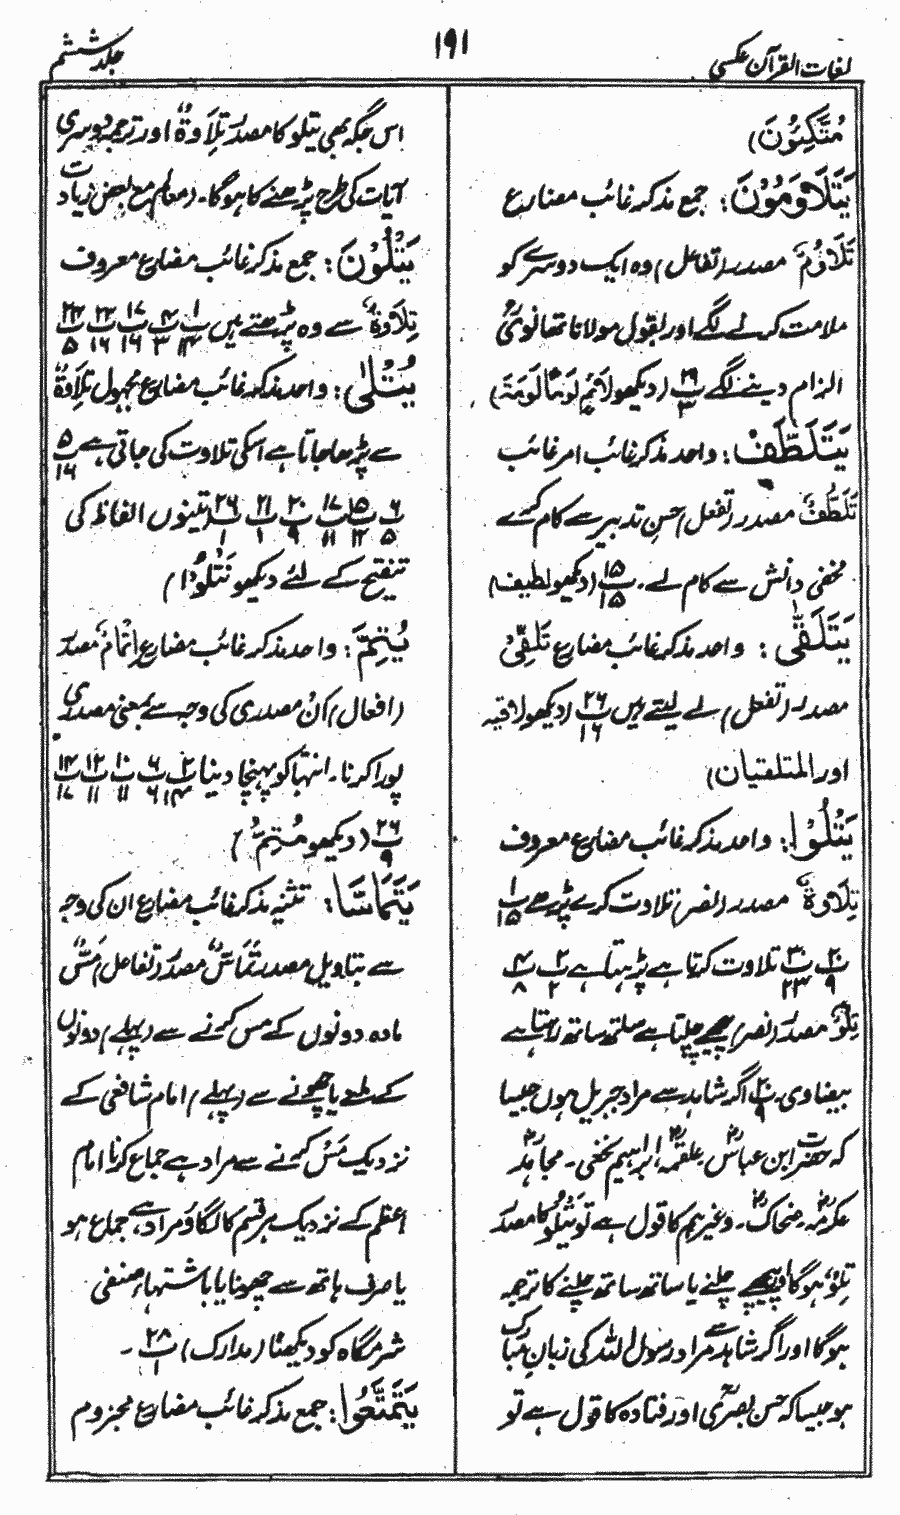 لغات القرآن عکسی
۱۹۱
جلد ششم
مُتَّكِئُونَ)
يَتَلَاوَمُوْنَ: جمع مذکر غائب مضارع
تَلَاوُمٌ مصدر (تفاعل) وہ ایک دوسرے کو
ملامت کرنے لگے اور بقول مولانا تھانویؒ
الزام دینے لگے پ ۲۹ ۳ (دیکھو لَائِمٍ لَوَّامَۃ لَوْمَۃَ)
يَتَلَطَّفْ: واحد مذکر غائب امر غائب
تَلَطُّفٌ مصدر (تفعل) حسنِ تدبیر سے کام کرے
مخفی دانش سے کام لے۔ پ ۱۵ ۱۵ (دیکھو لطیف)
يَتَلَقّٰى: واحد مذکر غائب مضارع تَلَقِّیْ
مصدر (تفعل) لے لیتے ہیں پ ۲۶ ۱۶ (دیکھو لاقیہ
اور المتلقیان)
يَتْلُوْا: واحد مذکر غائب مضارع معروف
تِلَاوَةٌ مصدر (نصر) تلاوت کرے پڑھے پ ۱ ۱۵
پ ۲۰ ۹ پ ۳۰ ۲۳ تلاوت کرتا ہے پڑھتا ہے پ ۲ ۲ پ ۴ ۸
تِلْوٌ مصدر (نصر) پیچھے چلتا ہے ساتھ ساتھ رہتا ہے
بیضاوی۔ پ ۲۰ ۹ اگر شاہد سے مراد جبریل ہوں جیسا
کہ حضرت ابن عباسؓ علقمہؒ ابراہیم نخعی۔ مجاہدؒ
عکرمہؒ۔ ضحاکؒ۔ وغیرہم کا قول ہے تو یَتْلُوْ کا مصدر
تِلْوٌ ہوگا پیچھے چلنے یا ساتھ ساتھ چلنے کا ترجمہ
ہوگا اور اگر شاہد سے مراد رسول اللہ کی زبان مبارک
ہو جیسا کہ حسن بصریؒ اور قتادہ کا قول ہے تو
اس جگہ بھی یتلو کا مصدر تِلَاوَۃٌ اور ترجمہ دوسری
آیات کی طرح پڑھنے کا ہوگا۔ (معالم مع بعض زیادت)
يَتْلُوْنَ: جمع مذکر غائب مضارع معروف
تِلَاوَۃٌ سے وہ پڑھتے ہیں پ ۱ ۱۴ پ ۴ ۳ پ ۱۷ ۱۶ پ ۲۲ ۱۶ پ ۲۴ ۵
يُتْلٰى: واحد مذکر غائب مضارع مجہول تِلَاوَۃٌ
سے پڑھا جاتا ہے اسکی تلاوت کی جاتی ہے پ ۵ ۱۶
پ ۶ ۵ پ ۱۵ ۱۲ پ ۱۷ ۱۱ پ ۲۰ ۹ پ ۲۱ ۱ پ ۲۶ ۱ (تینوں الفاظ کی
تنقیح کے لئے دیکھو نَتْلُوْا)
يُتِمَّ: واحد مذکر غائب مضارع اِتْمَامٌ مصدر
(افعال) اَنْ مصدری کی وجہ سے بمعنی مصدری
پورا کرنا۔ انتہا کو پہنچا دینا پ ۲ ۱۴ پ ۶ ۶ پ ۱۰ ۱۱ پ ۱۲ ۱۱ پ ۱۴ ۱۷
پ ۲۶ ۹ (دیکھو مُتِمُّ)
يَتَمَاسَّا: تثنیہ مذکر غائب مضارع ان کی وجہ
سے بتاویل مصدر تَمَاسٌّ مصدر (تفاعل) مَسٌّ
مادہ دونوں کے مس کرنے سے (پہلے) دونوں
کے ملنے یا چھونے سے (پہلے) امام شافعی کے
نزدیک مَسّ کرنے سے مراد ہے جماع کرنا امام
اعظم کے نزدیک ہر قسم کا لگاؤ مراد ہے، جماع ہو
یا صرف ہاتھ سے چھونا یا با شتہاء صنفی
شرمگاہ کو دیکھنا (مدارک) پ ۲۸ ۱ ۔
يَتَمَتَّعُوْا: جمع مذکر غائب مضارع مجزوم